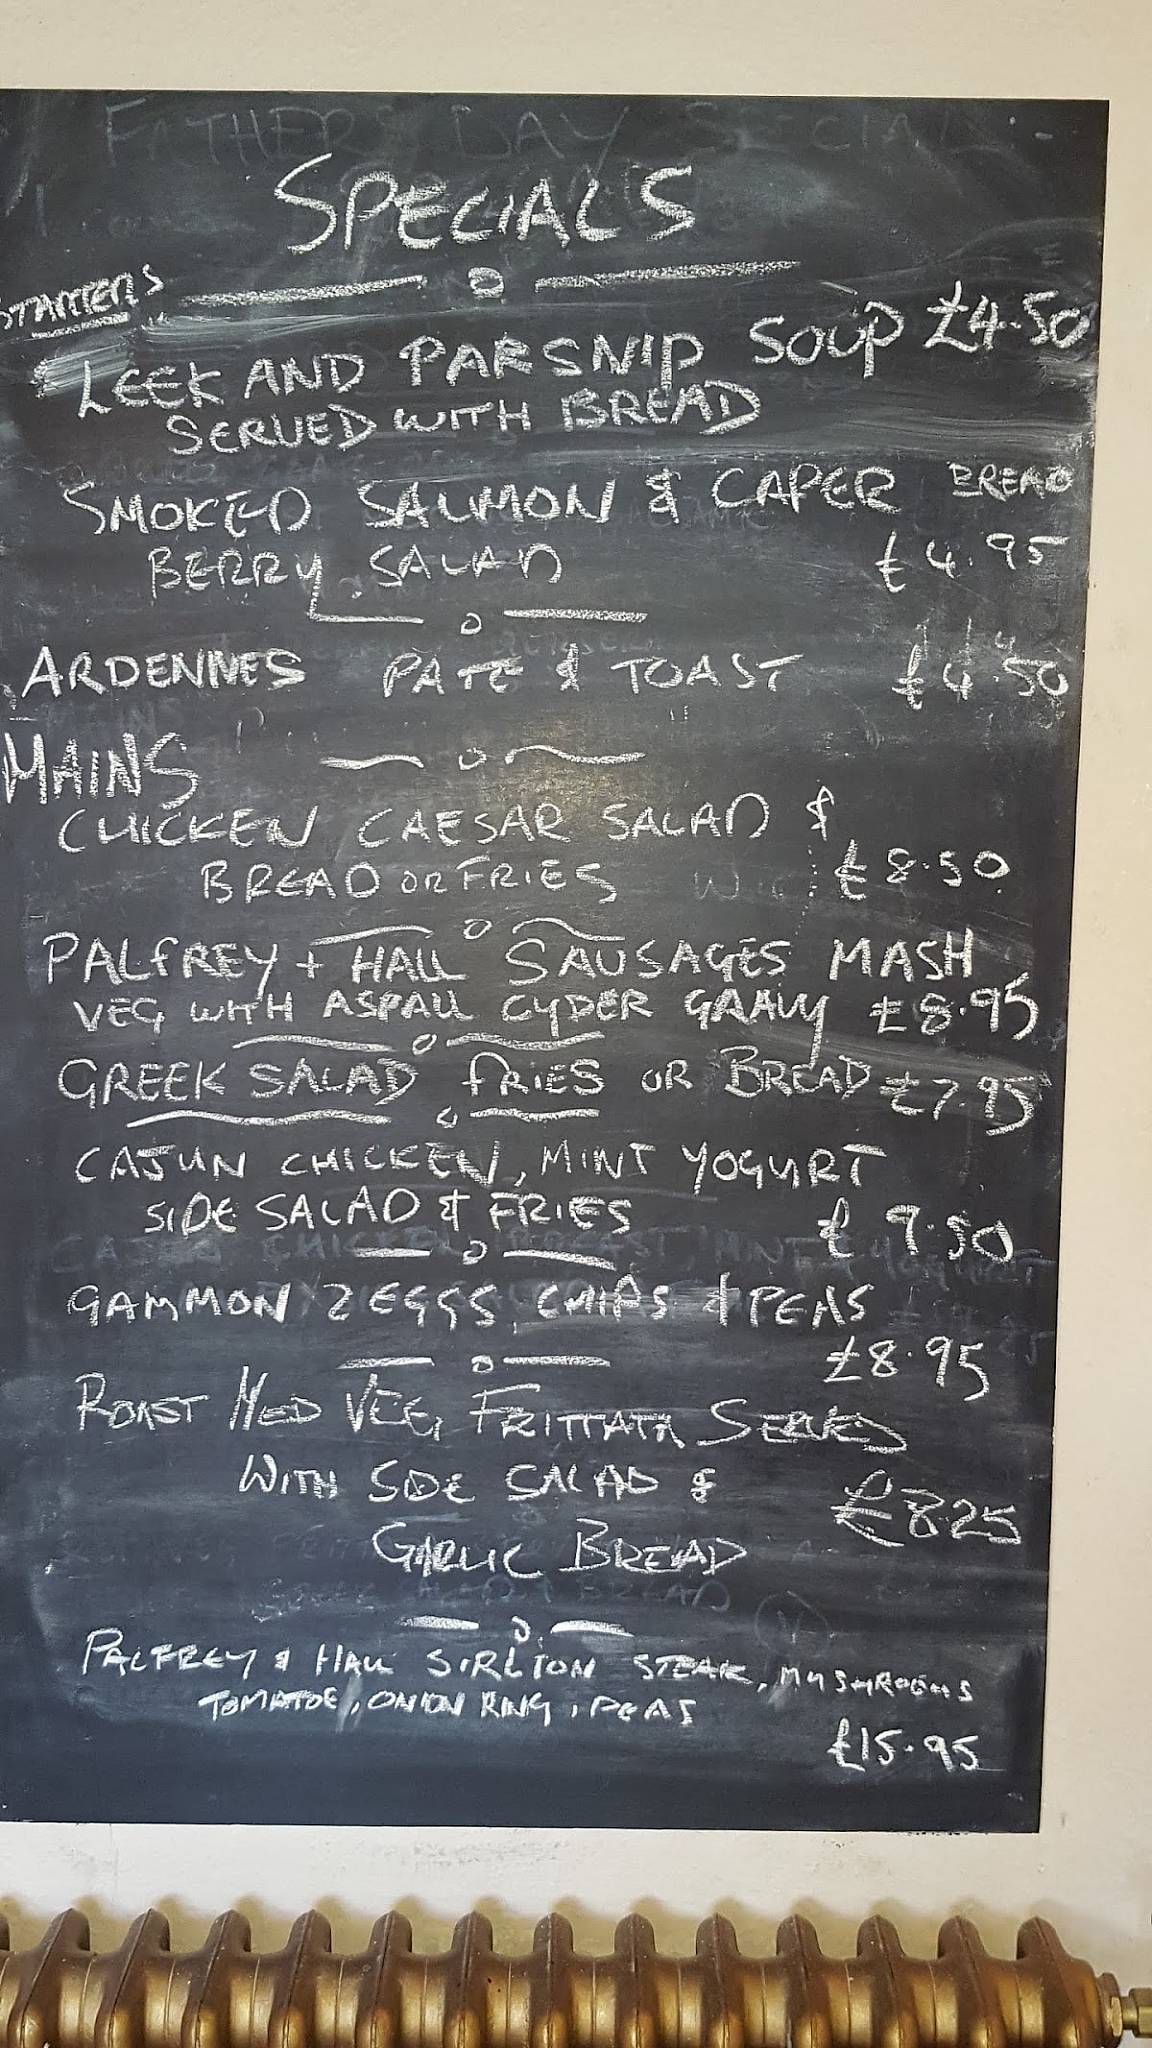 FATHERS DAY SPECIAL
SPECIALS
STARTERS
LEEK AND PARSNIP SOUP £4.50
SERVED WITH BREAD
SMOKED SALMON & CAPER BREAD
BERRY SALAD £4.95
ARDENNES PATE & TOAST £4.50
MAINS
CHICKEN CAESAR SALAD &
BREAD OR FRIES £8.50
PALFREY + HALL SAUSAGES MASH
VEG WITH ASPALL CYDER GRAVY £8.95
GREEK SALAD FRIES OR BREAD £7.95
CAJUN CHICKEN, MINT YOGURT
SIDE SALAD & FRIES £9.50
GAMMON 2 EGGS, CHIPS & PEAS
£8.95
ROAST MED VEG, FRITTATA SERVED
WITH SIDE SALAD & £8.25
GARLIC BREAD
PALFREY & HALL SIRLION STEAK, MUSHROOMS
TOMATOE, ONION RING, PEAS
£15.95